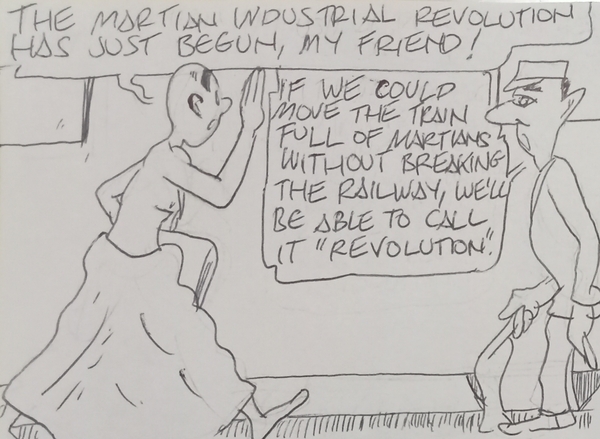 THE MARTIAN INDUSTRIAL REVOLUTION
HAS JUST BEGUN, MY FRIEND!
IF WE COULD
MOVE THE TRAIN
FULL OF MARTIANS
WITHOUT BREAKING
THE RAILWAY, WE'LL
BE ABLE TO CALL
IT "REVOLUTION".